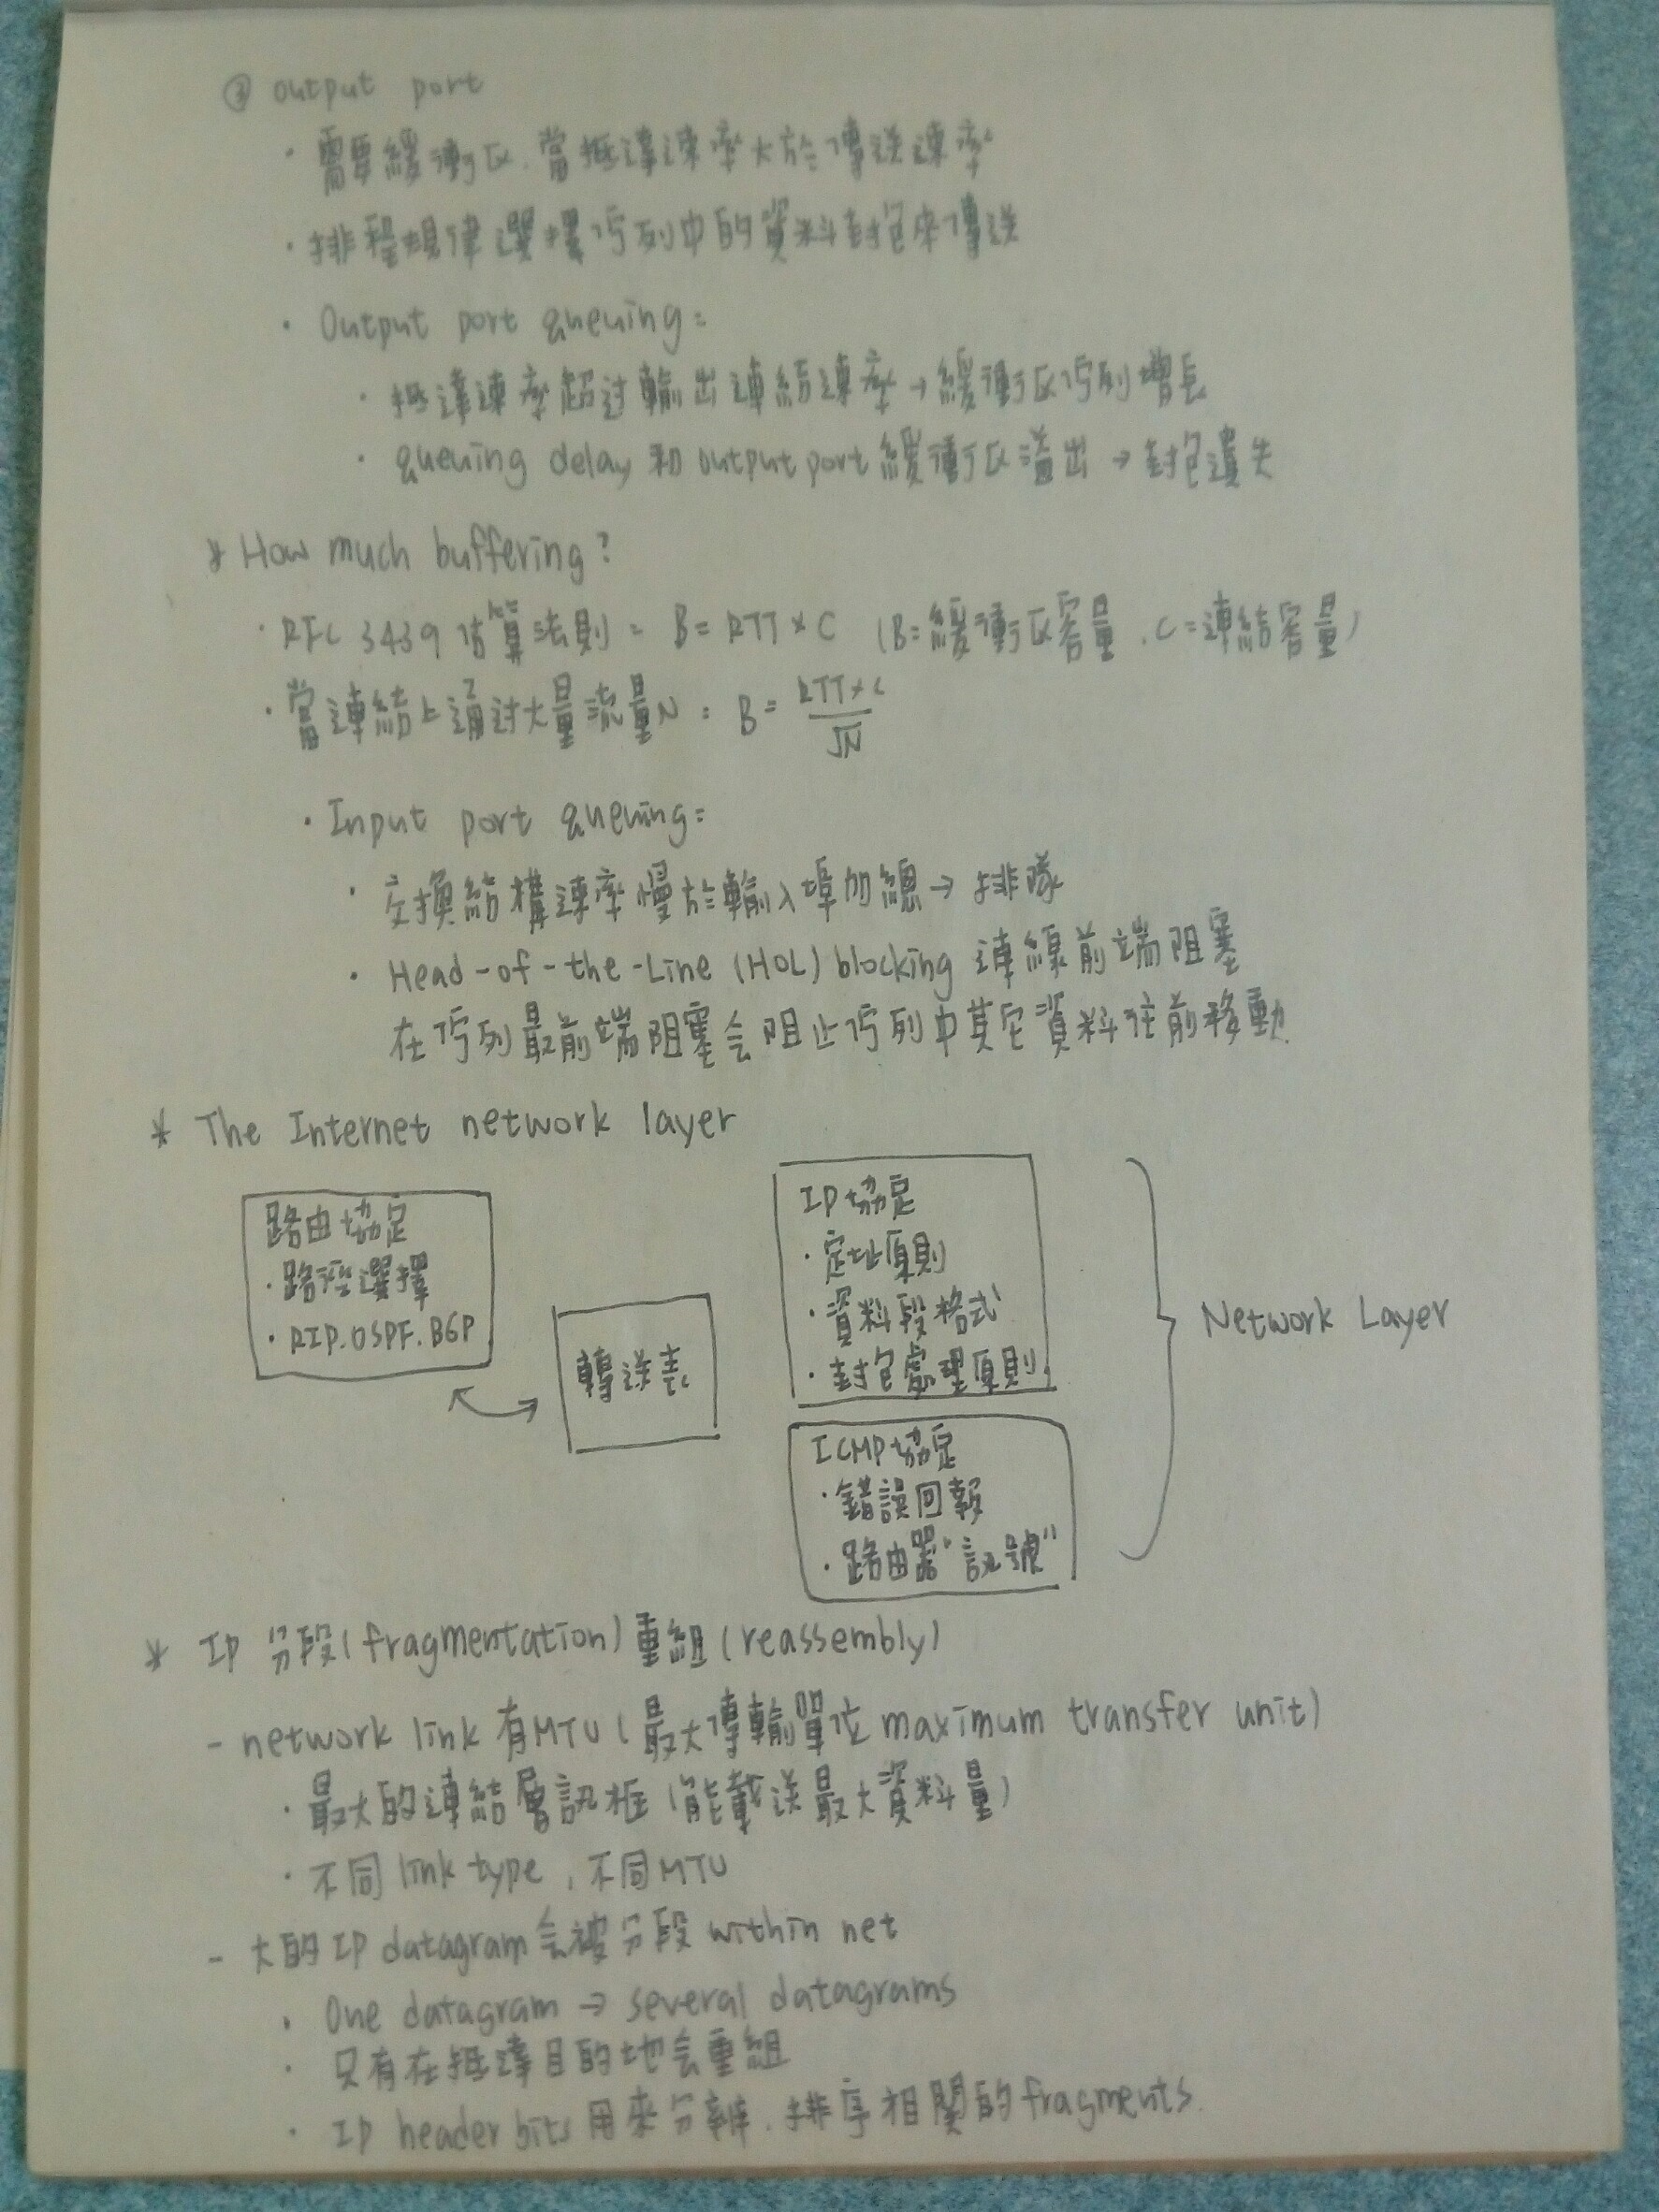 ③ Output port
· 需要緩衝区.當抵達速率大於傳送速率
· 排程規律選擇佇列中的資料封包來傳送
· Output port queuing:
· 抵達速率超过輸出連結速率→緩衝区佇列增長
· queuing delay 和 output port 緩衝区溢出 → 封包遺失
* How much buffering?
· RFC 3439 估算法則: B = RTT × C (B=緩衝区容量, C=連結容量)
· 當連結上通过大量流量N: B = RTT × C / √N
· Input port queuing:
· 交換結構速率慢於輸入埠加總 → 排隊
· Head-of-the-Line (HOL) blocking 連線前端阻塞
在佇列最前端阻塞会阻止佇列中其它資料往前移動.
* The Internet network layer
路由協定
· 路徑選擇
· RIP.OSPF.BGP
轉送表
IP協定
· 定址原則
· 資料段格式
· 封包處理原則
ICMP協定
· 錯誤回報
· 路由器"訊號"
Network Layer
* IP 分段(fragmentation)重組(reassembly)
- network link 有MTU(最大傳輸單位 maximum transfer unit)
· 最大的連結層訊框(能載送最大資料量)
· 不同 link type, 不同MTU
- 大的IP datagram会被分段 within net
· One datagram → several datagrams
· 只有在抵達目的地会重組
· IP header bits 用來分辨.排序相關的fragments.